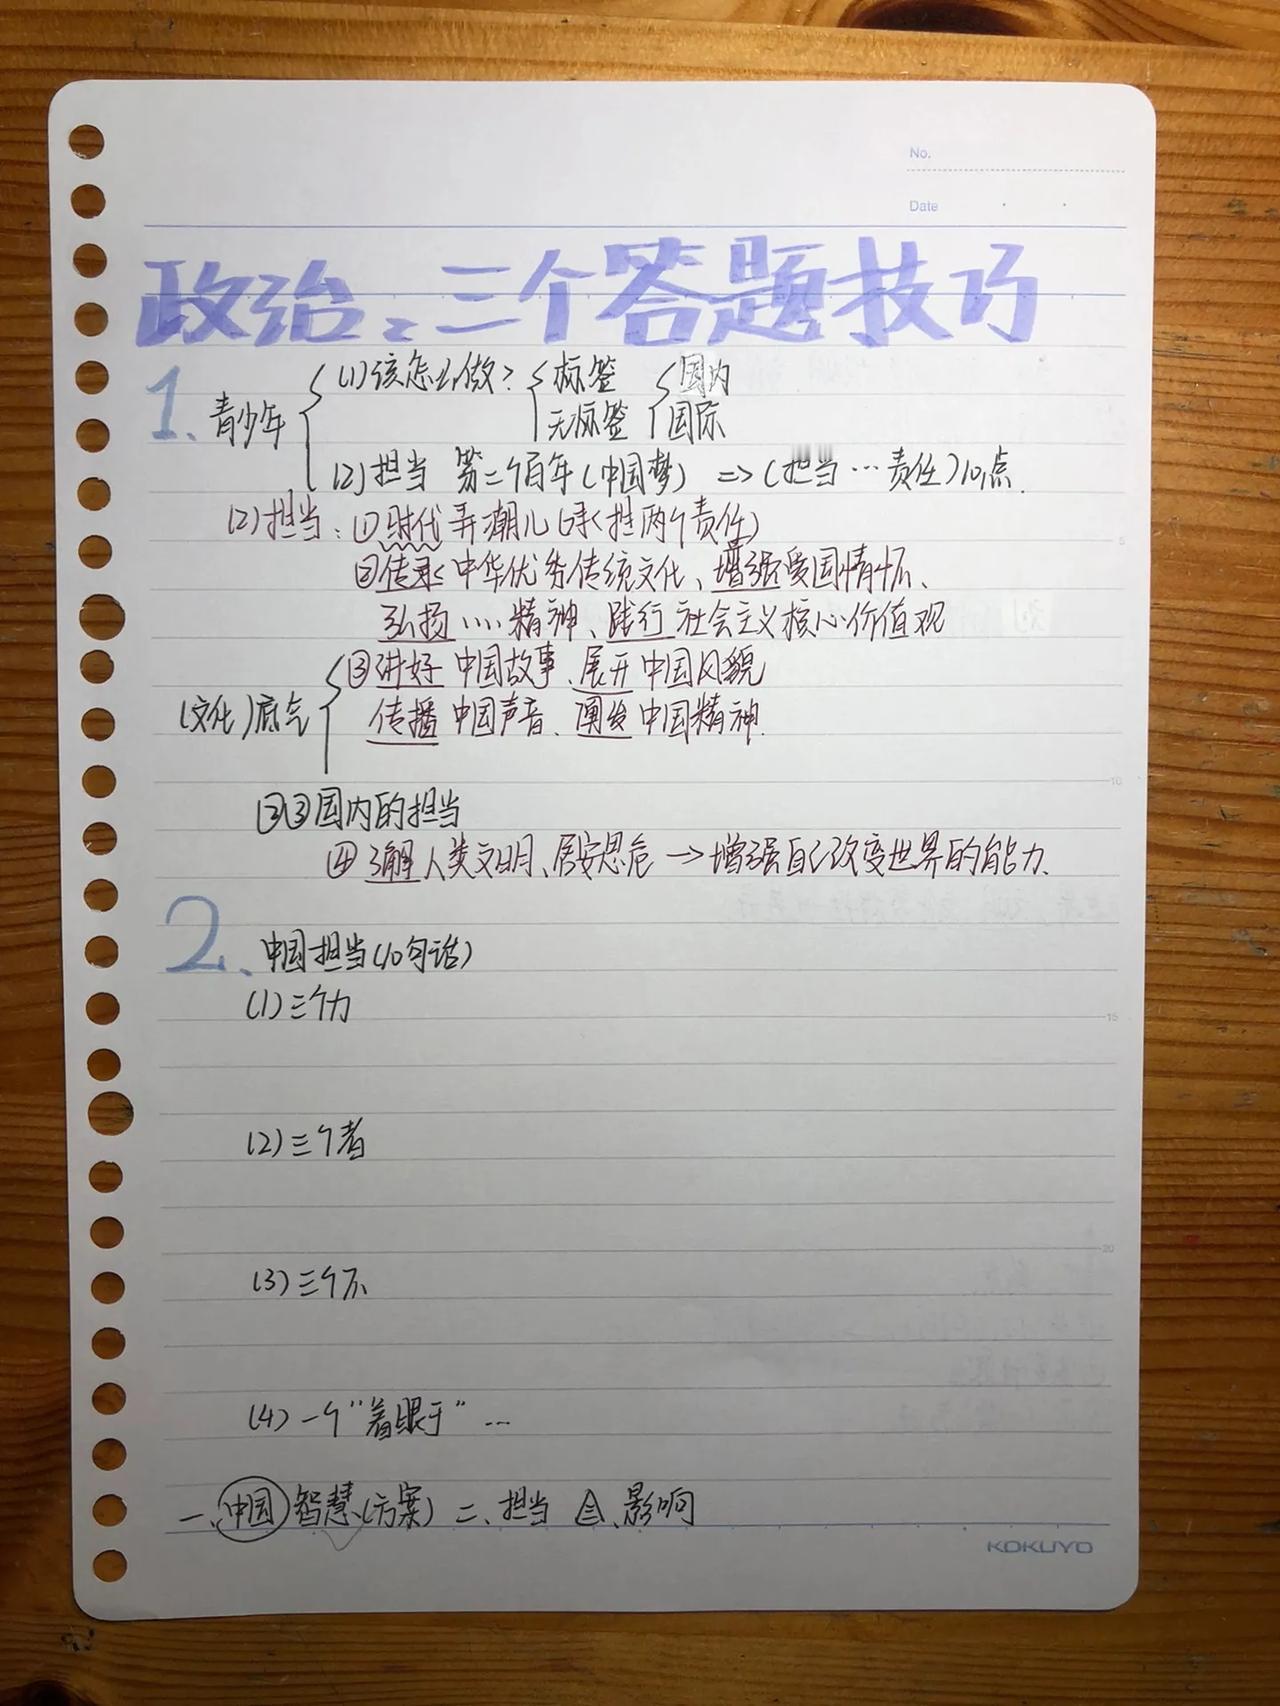 No.
Date
政治:三个答题技巧
1、青少年 (1)该怎么做? 标签 国内
无标签 国际
(2)担当 第二个百年(中国梦) => (担当…责任)10点.
(2)担当:①时代弄潮儿 (承担两个责任)
②传承中华优秀传统文化、增强爱国情怀、
弘扬……精神、践行社会主义核心价值观
(文化)底气 ③讲好中国故事、展开中国风貌
传播中国声音、阐发中国精神.
②③国内的担当
④了解人类文明、居安思危→增强自己改变世界的能力.
2、中国担当(10句话)
(1)三个力
(2)三个者
(3)三个不
(4)一个"着眼于"…
一、中国智慧(方案) 二、担当 三、影响
5
10
15
20
KOKUYO